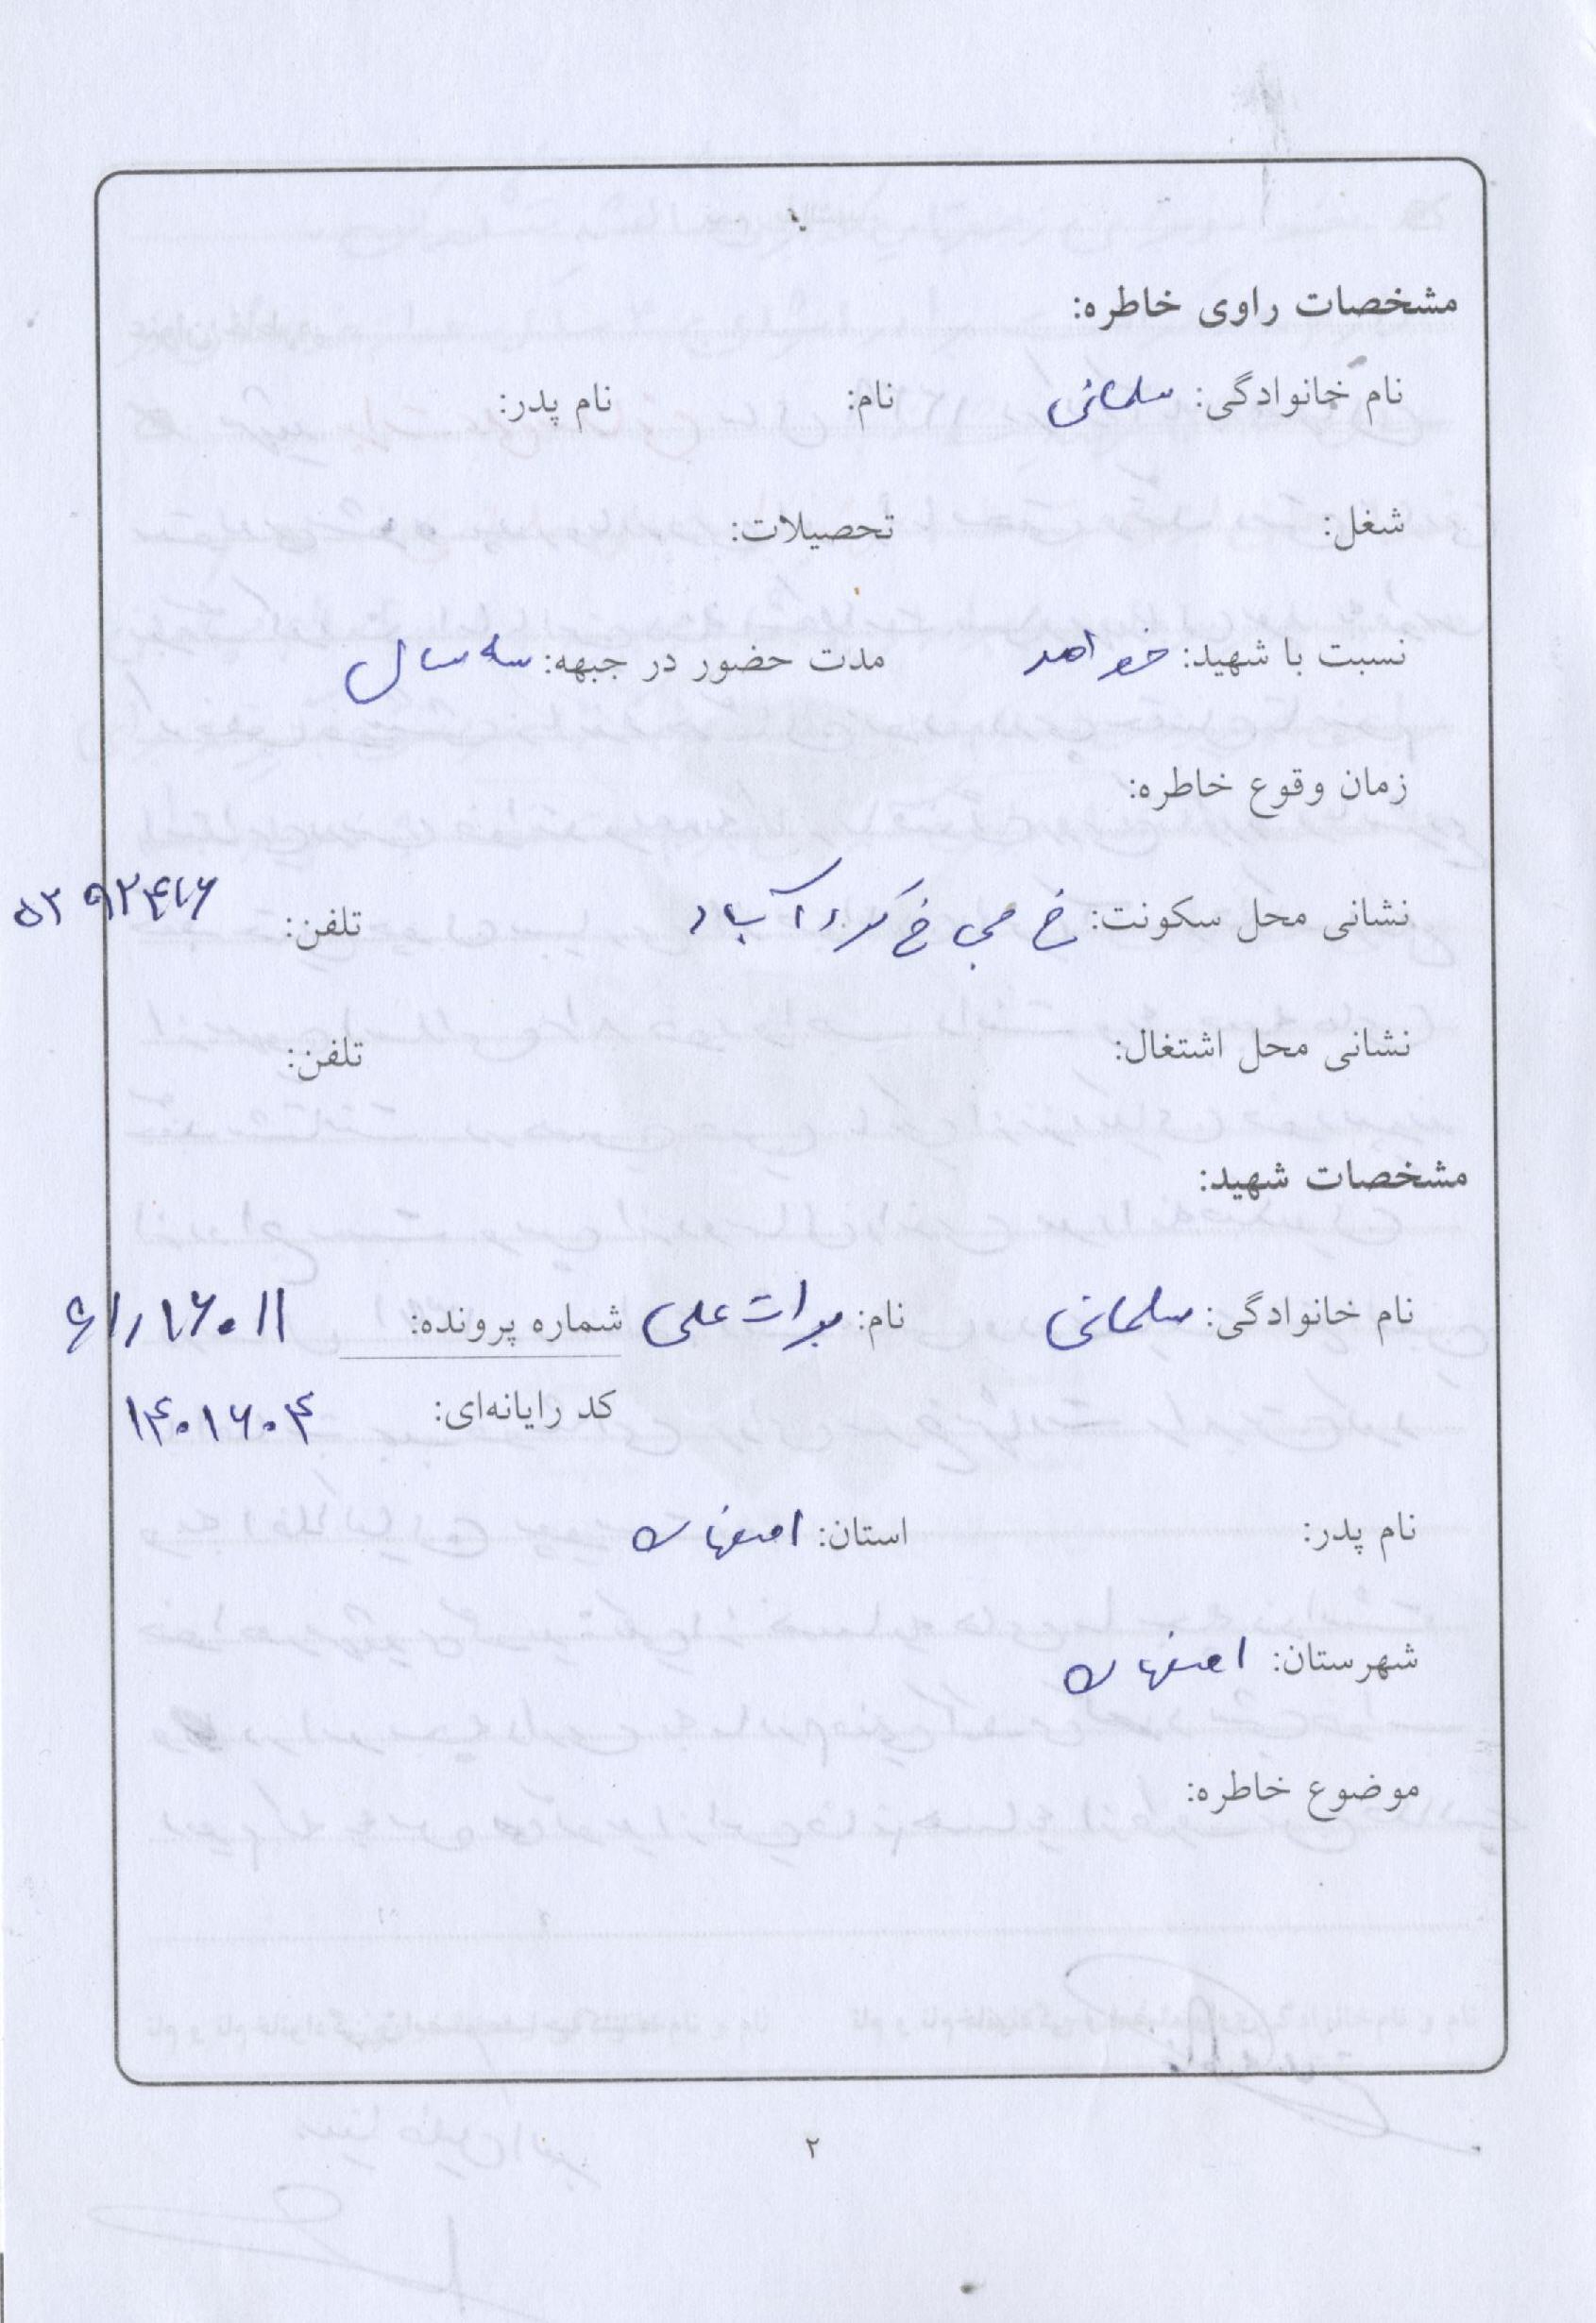 مشخصات راوی خاطره:
نام خانوادگی: سلمانی نام: نام پدر:
شغل: تحصیلات:
نسبت با شهید: خواهر مدت حضور در جبهه: سه سال
زمان وقوع خاطره:
نشانی محل سکونت: خ خ آباد تلفن:
نشانی محل اشتغال: تلفن:
مشخصات شهید:
نام خانوادگی: سلمانی نام: برات علی شماره پرونده: ۶۱/۱۶۰۱۱
کد رایانه‌ای: ۱۴۰۱۶۰۴
نام پدر: استان: اصفهان
شهرستان: اصفهان
موضوع خاطره:
۲